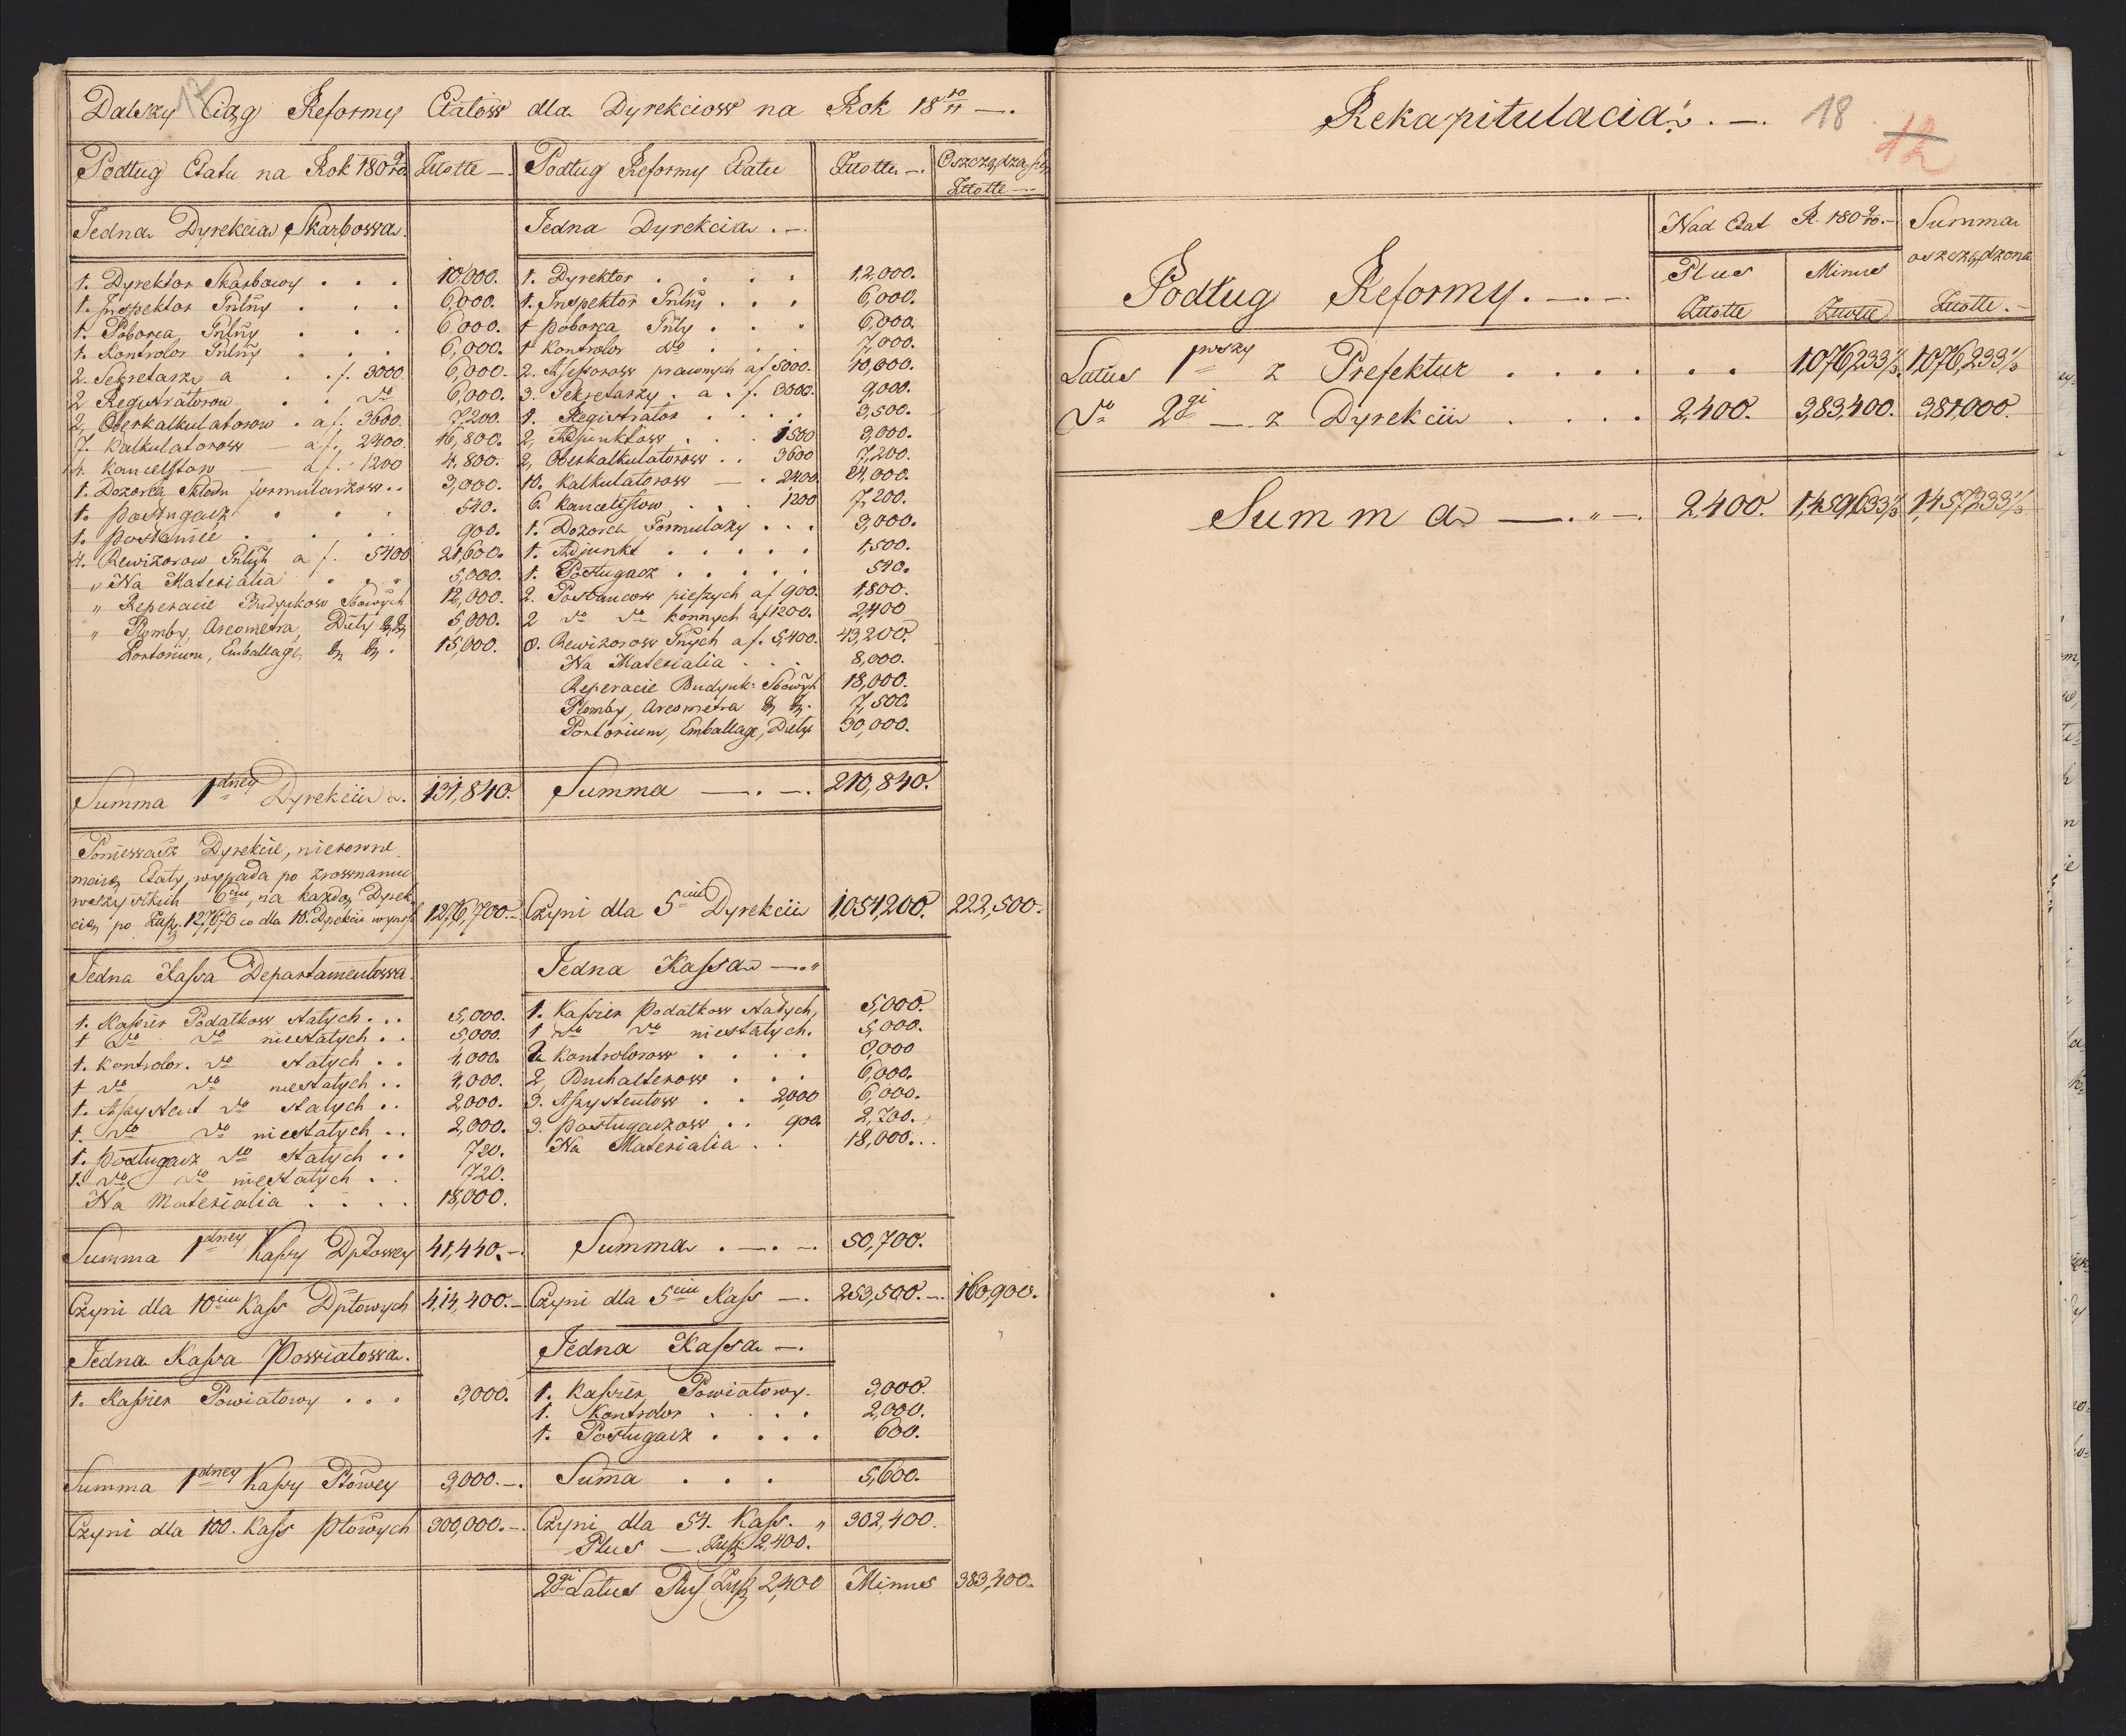 Dalszy Ciąg Reformy Etatow dla Dyrekciow na Rok 18 10/11 —.
Podług Etatu na Rok 180 9/10 Złotte —. Podług Reformy Etatu Złotte —. Oszczędza się Złotte —
Jedna Dyrekcia Skarbowa. Jedna Dyrekcia . —.
1. Dyrektor Skarbowy . . . 10,000. 1. Dyrektor . . . . 12,000.
1. Inspektor Gnlny . . . 6,000. 1. Inspektor Gnlny . . . 6,000.
1. Poborca Gnlny . . . 6,000. 1 poborca Gnly . . . 6,000.
1. Kontrolor Gnlny . . . 6,000. 1 Kontrolor do . . . 7,000.
2. Sekretarzy a . . f. 3000. 6,000. 2. Assessorow prawnych a f 5000. 10,000.
2 Registratorow . . do 6,000. 3. Sekretarzy . a . f. 3000. 9,000.
2, Oberkalkulatorow . a f. 3600. 7200. 1. Registrator . . . . 3,500.
7. Kalkulatorow — a f. 2400. 16,800. 2, Adjunktow . . . 1500 3,000.
4. Kancellstow — a f. 1200 4,800. 2, Oberkalkulatorow . . 3600 7,200.
1. Dozorca Składu formularzow . . 3,000. 10. Kalkulatorow — . 2400. 24,000.
1. posługacz . . . 540. 6. Kancelistow . . . 1200 7,200.
1. posłaniec . . . . 900. 1. Dozorca Formularzy . . . 3,000.
4. Rewizorow Gnlych a f. 5400 21,600. 1. Adjunkt . . . . . 1,500.
„ Na Materialia . . . 5,000. 1. Posługacz . . . . . 540.
„ Reperacie Budynkow Sbowych 12,000. 2. Posłancow pieszych a f 900. 1,800.
„ Plomby, Areometra, Diety &&. 5,000. 2 do do konnych a f 1200. 2,400
Portorium, Emballage, & &. 15,000. 8. Rewizorow Gnych a f. 5,400. 43,200.
Na Materialia . . . 8,000.
Reperacie Budynk: Sbowych 18,000.
Plomby, Areometra & &. 7,500.
Portorium, Emballage, Diety 30,000.
Summa 1dney Dyrekcii . 131,840. Summa —. —. 210,840.
Poniewasz Dyrekcie, nierowne
maią Etaty, wypada po zrownaniu
wszystkich 6ciu, na każdą Dyrek
cią po Zł. 127,670 co dla 10. Dyrekcii wynosi 1,276,700.— Czyni dla 5ciu Dyrekcii 1,054,200. 222,500.
Jedna Kassa Departamentowa. Jedna Kassa —. „
1. Kassier Podatkow stałych . . . 5,000. 1. Kassier Podatkow stałych, 5,000.
1 do do niestałych . . 5,000. 1 do do niestałych. 5,000.
1. Kontrolor. do stałych . . 4,000. 2. Kontrolorow . . . . 8,000
1 do do niestałych . . 4,000. 2, Buchalterow . . . 6,000.
1. Assystent do stałych . . 2,000. 3. Assystentow . . 2,000 6,000.
1. do do niestałych . . 2,000. 3. posługaczow . . 900. 2,700.
1. posługacz do stałych . . 720. Na Materialia . . 18,000. .
1. do do niestałych . . 720.
Na Materialia . . . . 18,000.
Summa 1dney Kassy Dptowey 41,440.—. Summa . —. —. 50,700.
Czyni dla 10ciu Kass Dptowych 414,400.— Czyni dla 5ciu Kass —. 253,500.—. 160,900.
Jedna Kassa Powiatowa. Jedna Kassa —.
1. Kassier Powiatowy . . . 3,000. 1. Kassier Powiatowy. 3,000.
1. Kontrolor . . . . 2,000.
1. Posługacz . . . . 600.
Summa 1dney Kassy Ptowey 3,000.—. Suma . . . 5,600.
Czyni dla 100. Kass Ptowych 300,000.—. Czyni dla 54. Kass. „ 302,400.
Plus — Złp 2,400.
2gi Latus Plus Złp 2,400 Minus 383,400.
Rekapitulacia. —. 18
12
Podług Reformy. —. — Nad Etat R. 180 9/10.— Summa oszczędzona
Plus Złotte Minus Złotte Złotte. —
Latus 1wszy z Prefektur . . . . . . 1,076,233 1/3. 1,076,233 1/3
do 2gi — z Dyrekcii . . . . 2,400. 383,400. 381,000.
Summa —. „ —. 2,400. 1,459,633 1/3 1,457,233 1/3